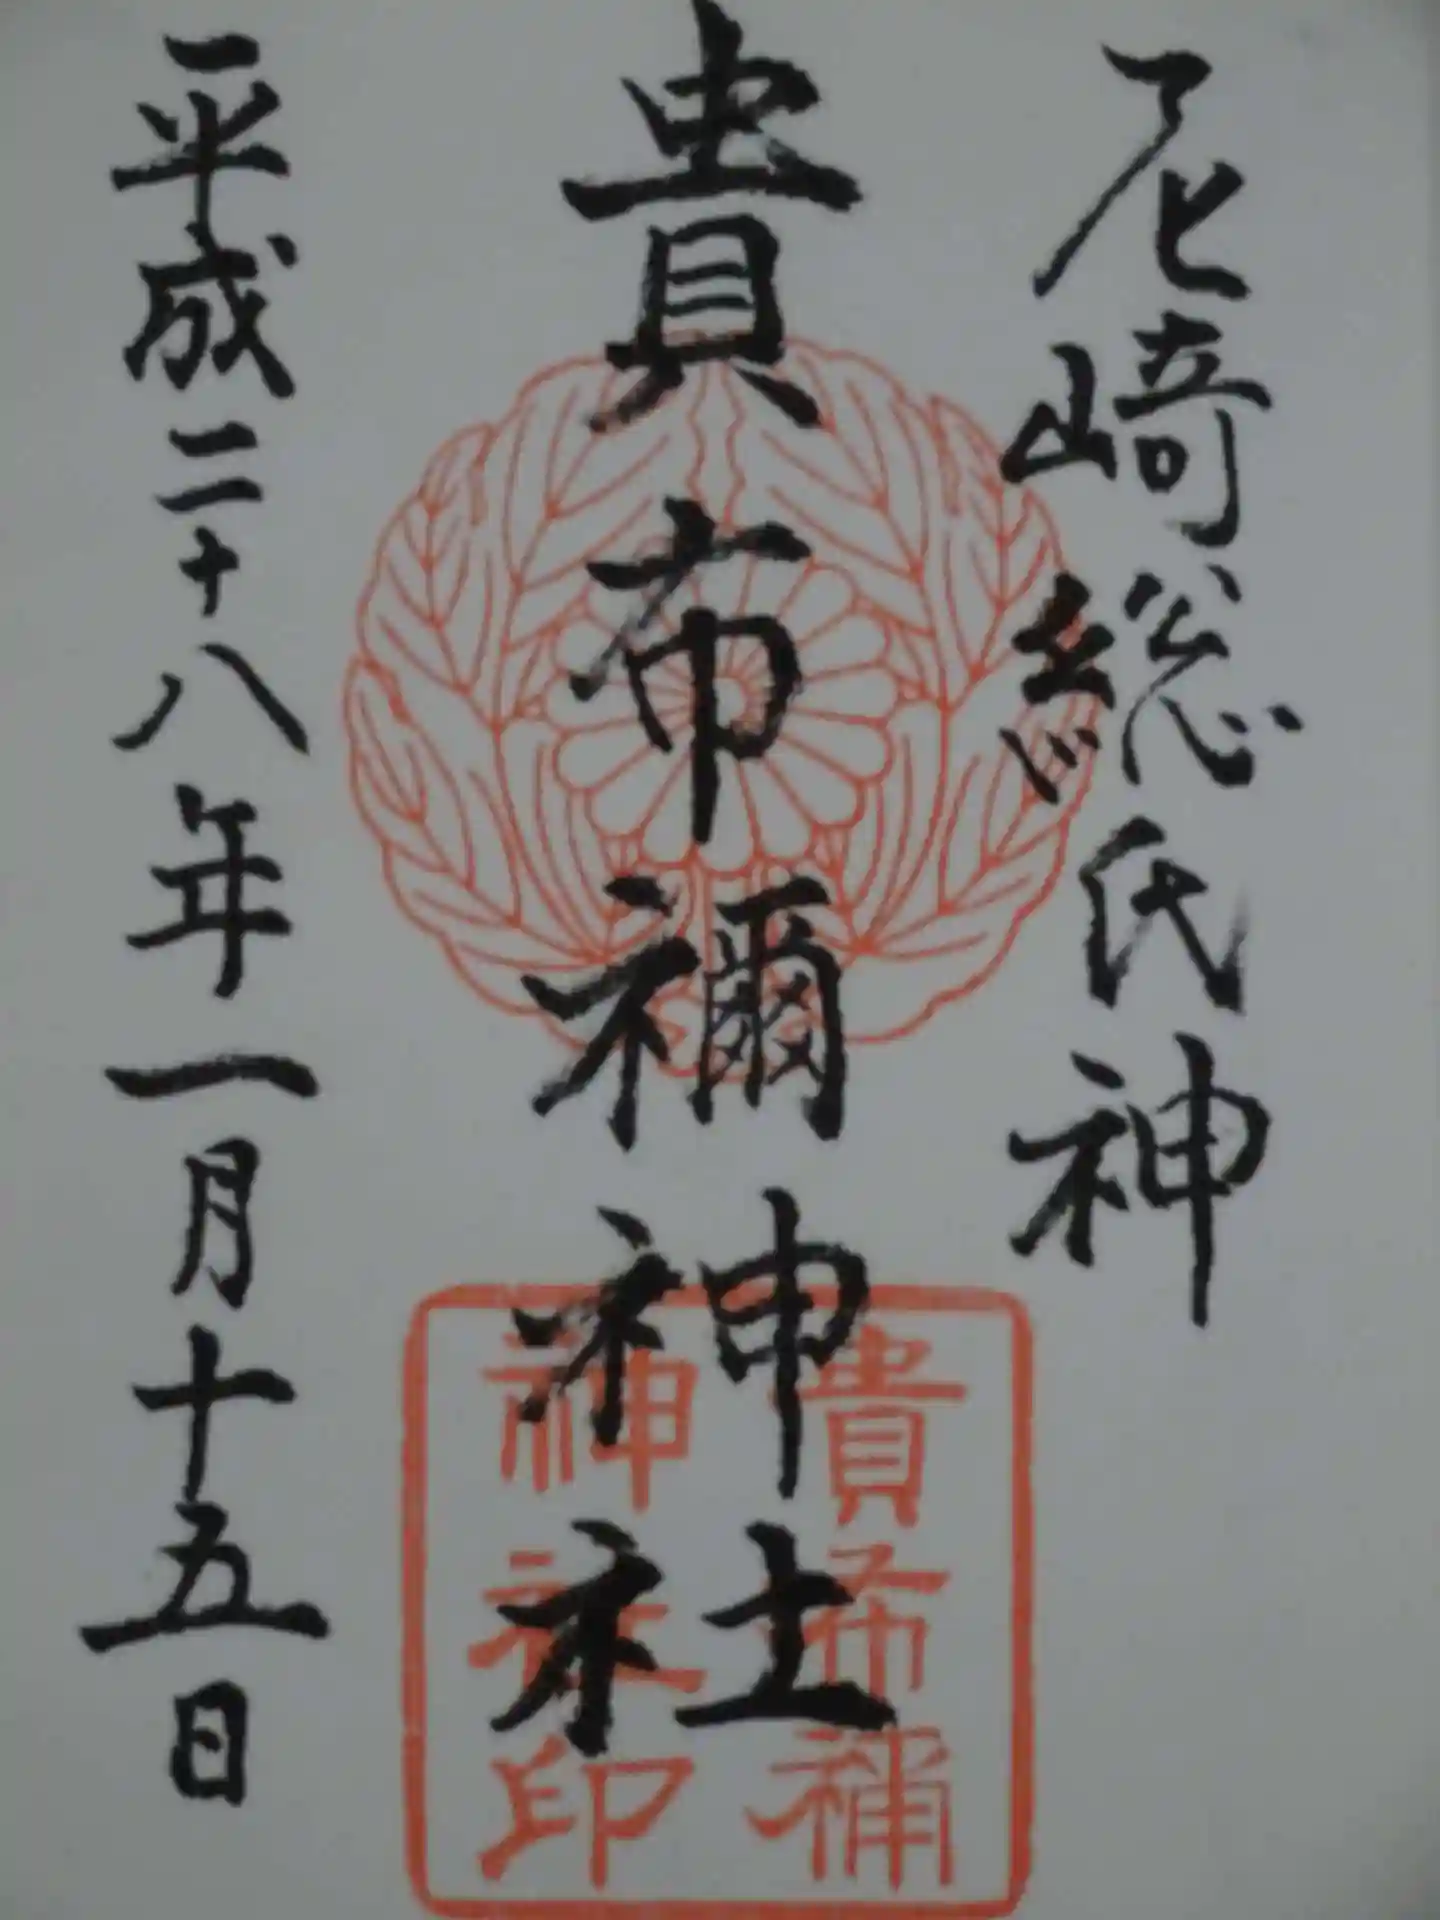 尼崎総氏神
貴布禰神社
平成二十八年一月十五日
貴布禰
神社印